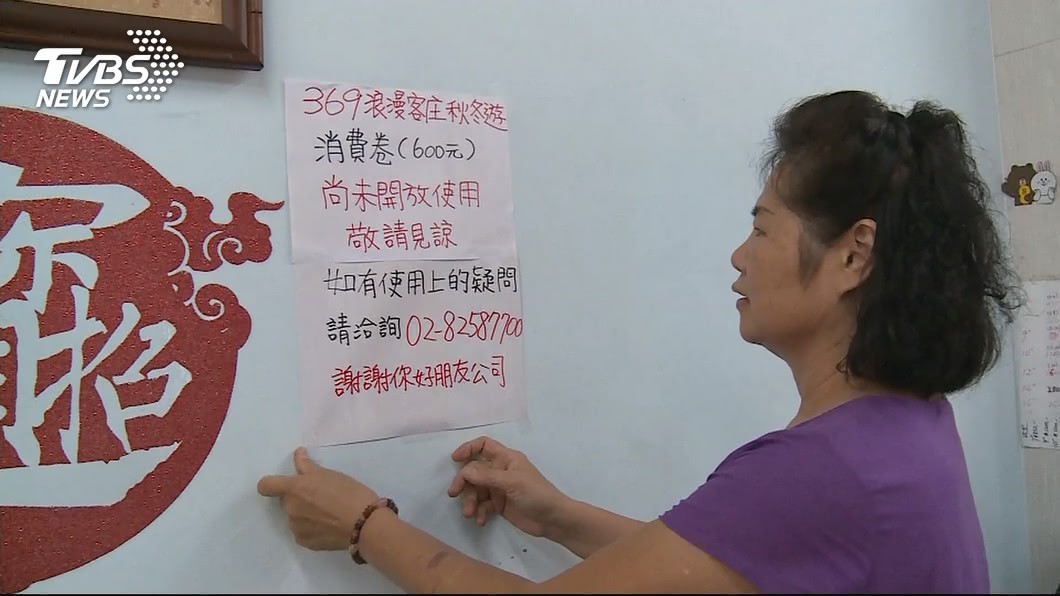 TVBS
NEWS
369浪漫客庄秋冬遊
消費卷(600元)
尚未開放使用
敬請見諒
如有使用上的疑問
請洽詢02-82587700
謝謝你好朋友公司
招